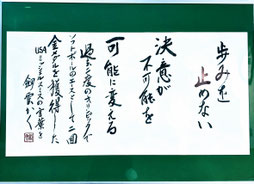 歩みを
止めない
決意が
不可能を
可能に変える
過去二度のオリンピックで
ソフトボールのエースとして二回
金メダルを獲得した
USAミッシェルスミスの言葉を
かく